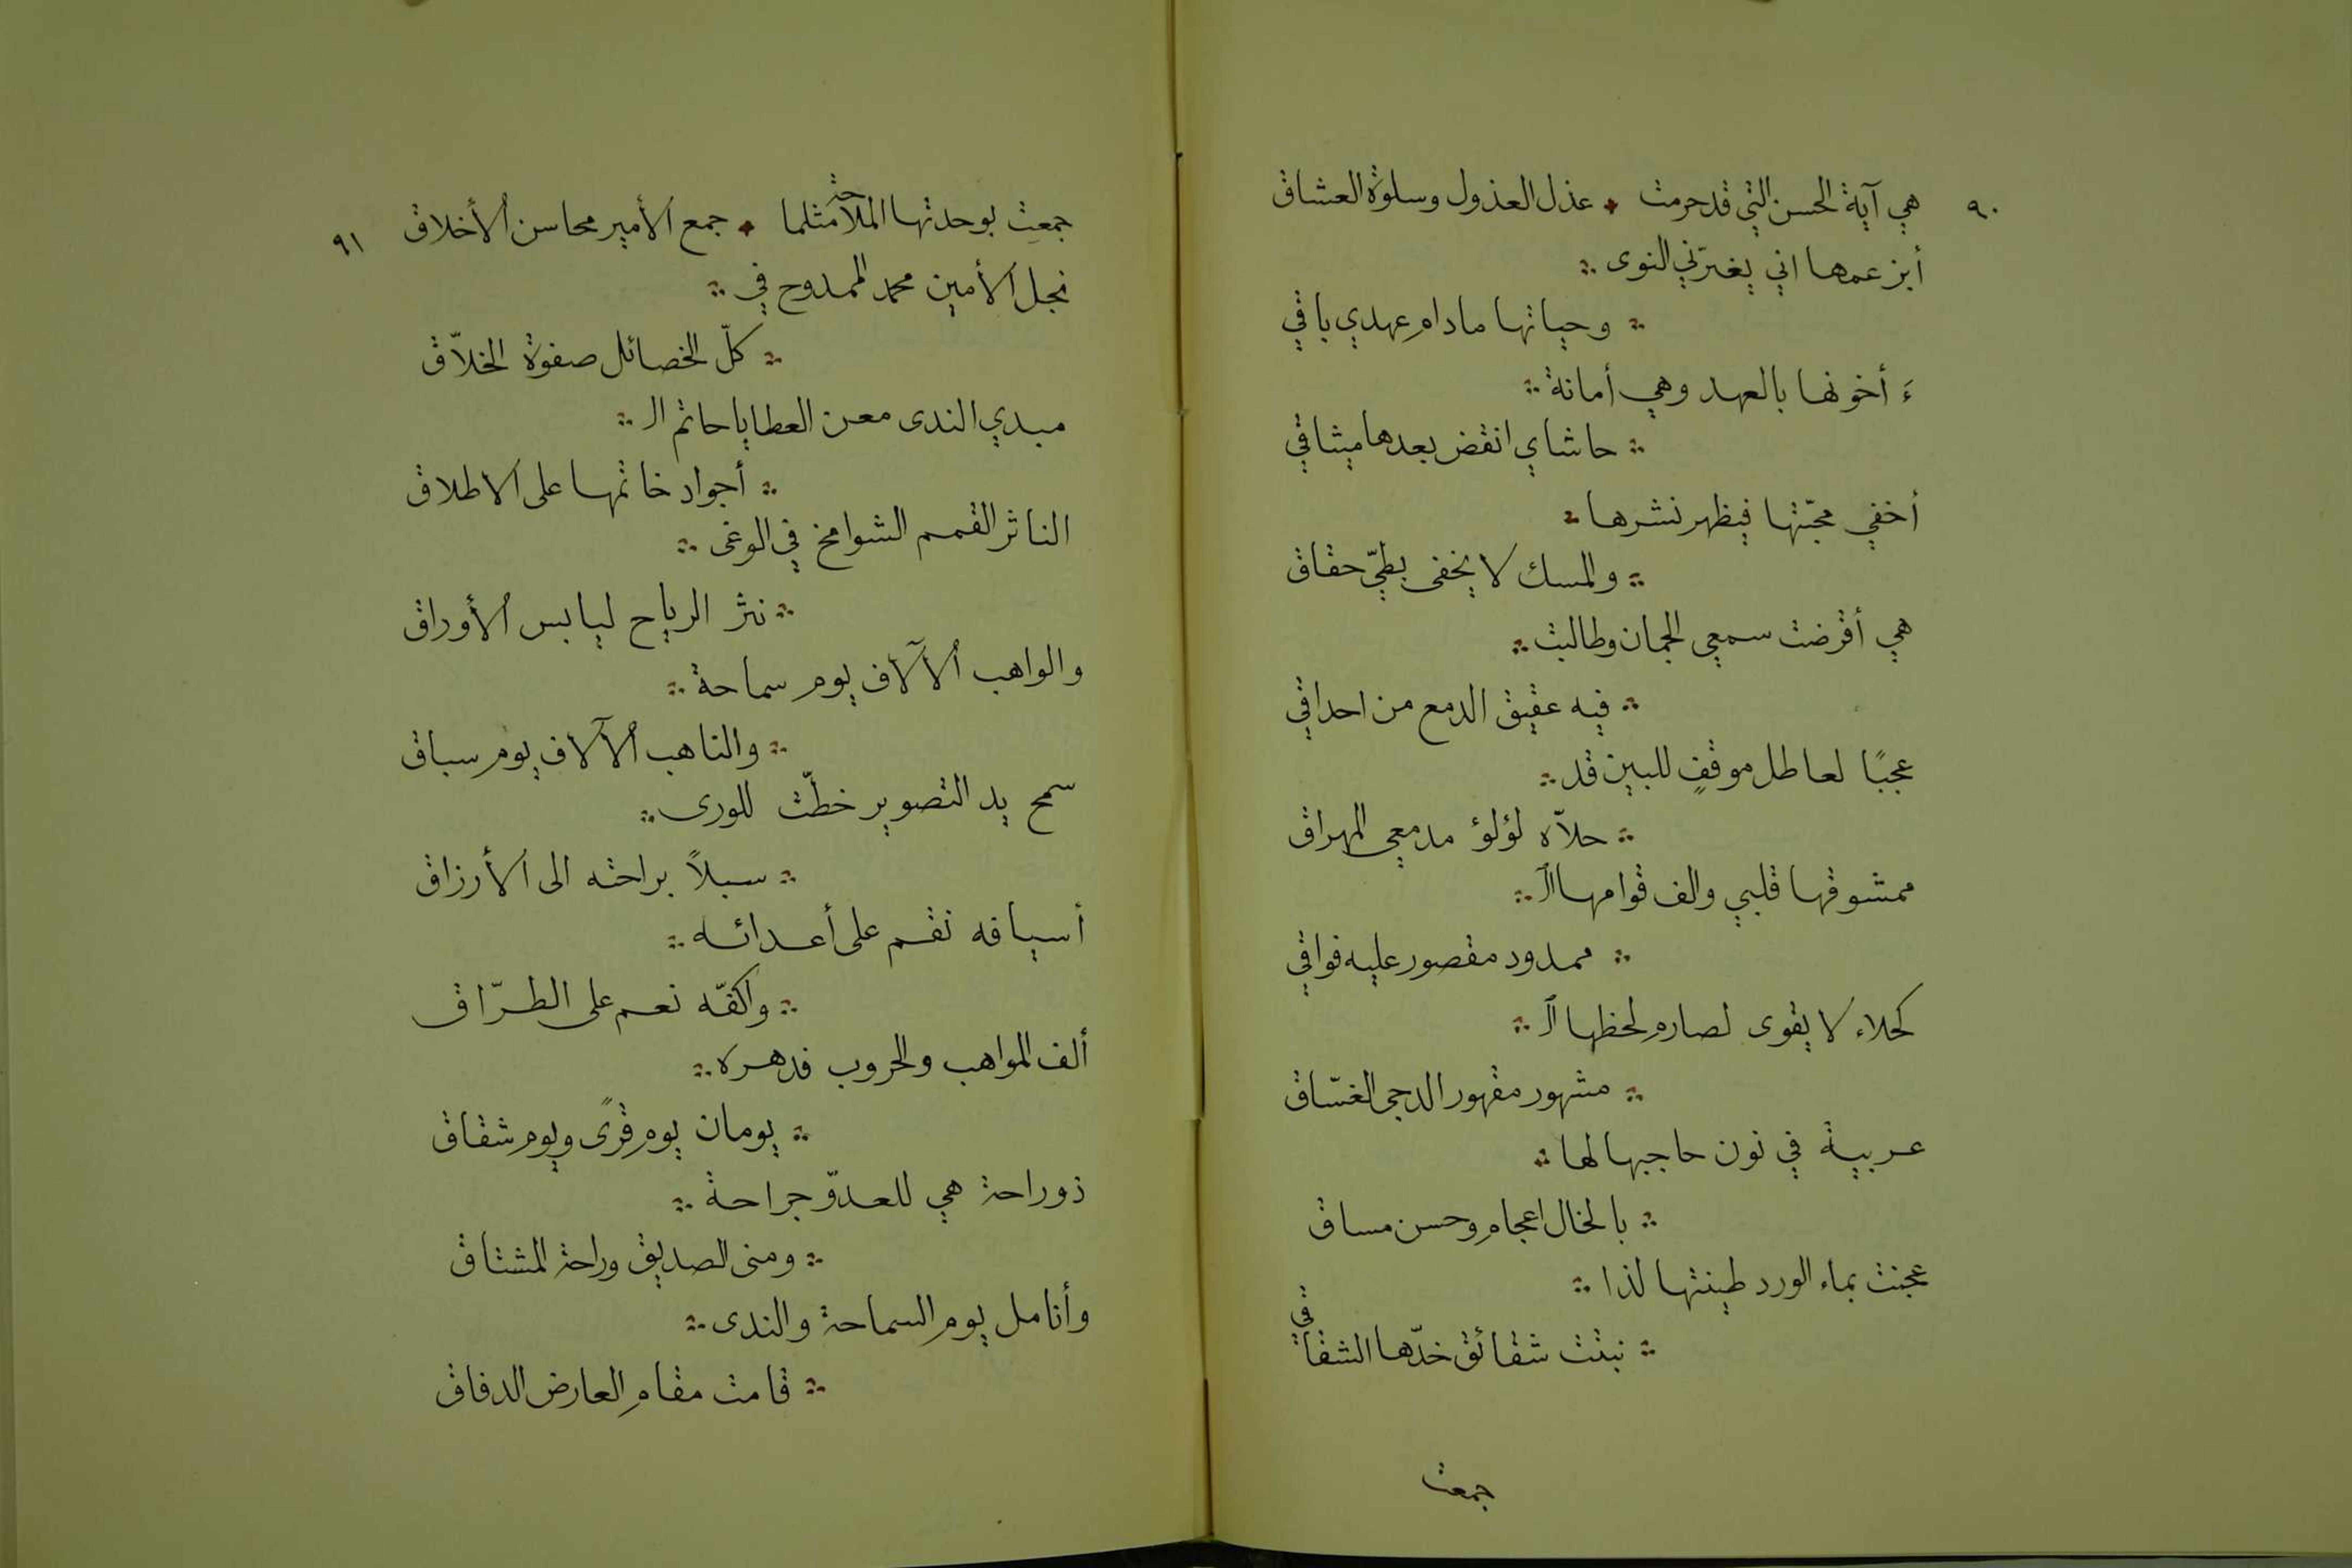 ٩٠
هي آية الحسن التي قد حرمت ؞ عذل العذول وسلوة العشاق
أبزعمها اني يغيّرني النوى ؞
؞ وحياتها مادام عهدي باقي
ءَ أخونها بالعهد وهي أمانة ؞
؞ حاشاي انقض بعدها ميثاقي
أخفي محبّتها فيظهر نشرها ؞
؞ والمسك لا يخفى بطيّ حقاق
هي أقرضت سمعي الجمان وطالبت ؞
؞ فيه عقيق الدمع من احداقي
عجبًا لعاطل موقفٍ للبين قد ؞
؞ حلاّه لؤلؤ مدمعي المهراق
ممشوقها قلبي والف قوامها الـ ؞
؞ ممدود مقصور عليه فواقي
كحلاء لا يقوى لصارم لحظها الـ ؞
؞ مشهور مقهور الدجى الغسّاق
عربية في نون حاجبها لها ؞
؞ بالخال اعجام وحسن مساق
عجنت بماء الورد طينتها لذا ؞
؞ نبتت شقائق خدّها الشفاقي
جمعت
٩١
جمعت بوحدتها الملاحة مثلما ؞ جمع الأمير محاسن الأخلاق
نجل الأمين محمد الممدوح في ؞
؞ كلّ الخصائل صفوة الخلاّق
مبدي الندى معن العطايا حاتم الـ ؞
؞ أجواد خاتمها على الاطلاق
الناثر القمم الشوامخ في الوغى ؞
؞ نثر الرياح ليابس الأوراق
والواهب الآلاف يوم سماحة ؞
؞ والناهب الآلاف يوم سباق
سمح يد التصوير خطّت للورى ؞
؞ سبلاً براحته الى الأرزاق
أسيافه نقم على أعدائه ؞
؞ واكفّه نعم على الطرّاق
ألف المواهب والحروب فدهره ؞
؞ يومان يوم قرًى ويوم شقاق
ذو راحة هي للعدوّ جراحة ؞
؞ ومنى الصديق وراحة المشتاق
وأنامل يوم السماحة والندى ؞
؞ قامت مقام العارض الدفاق